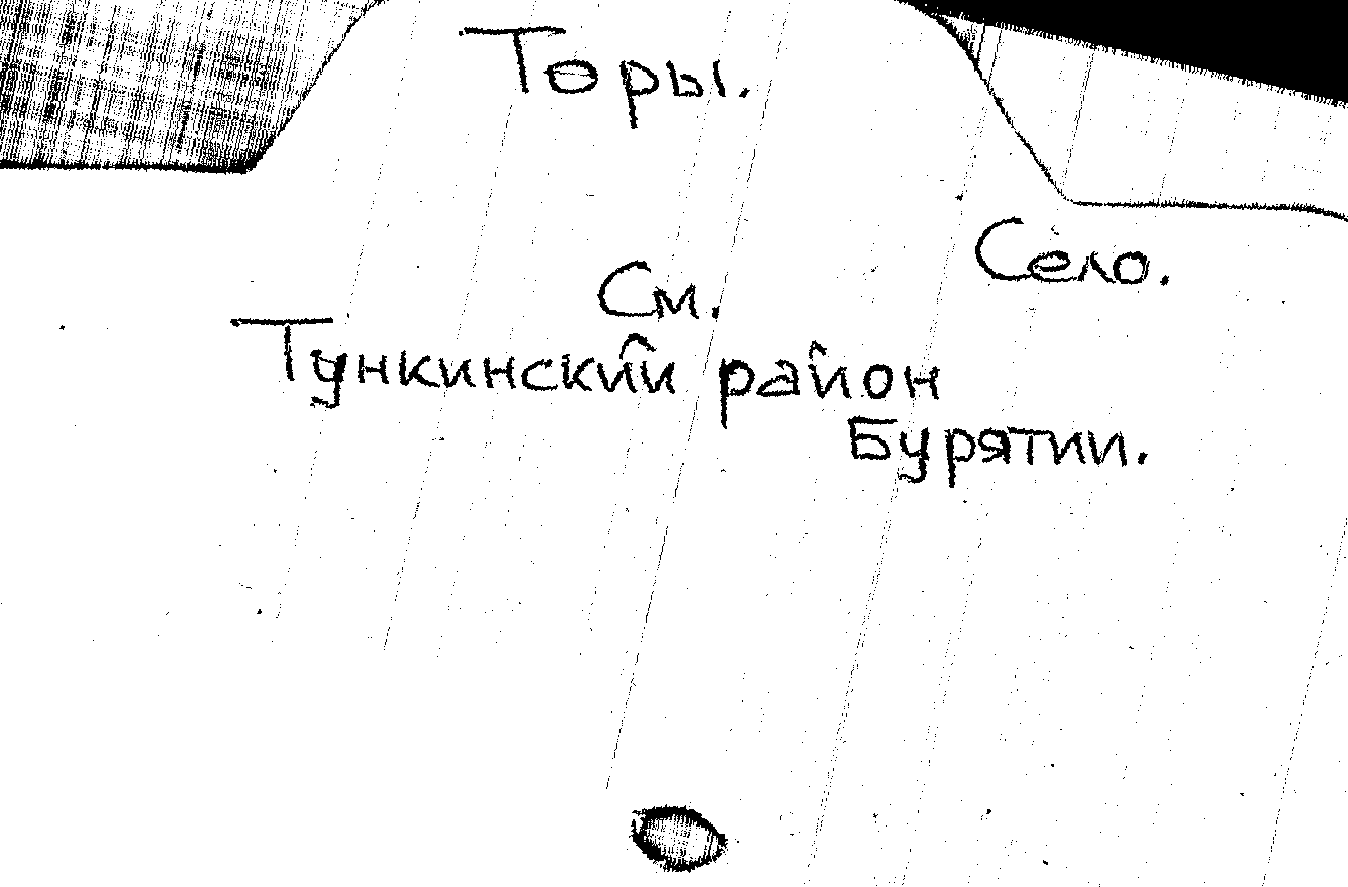 Торы.
Село.
См.
Тункинский район
Бурятии.